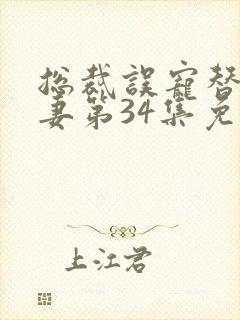 总裁误宠替
妻第34集免
上江君